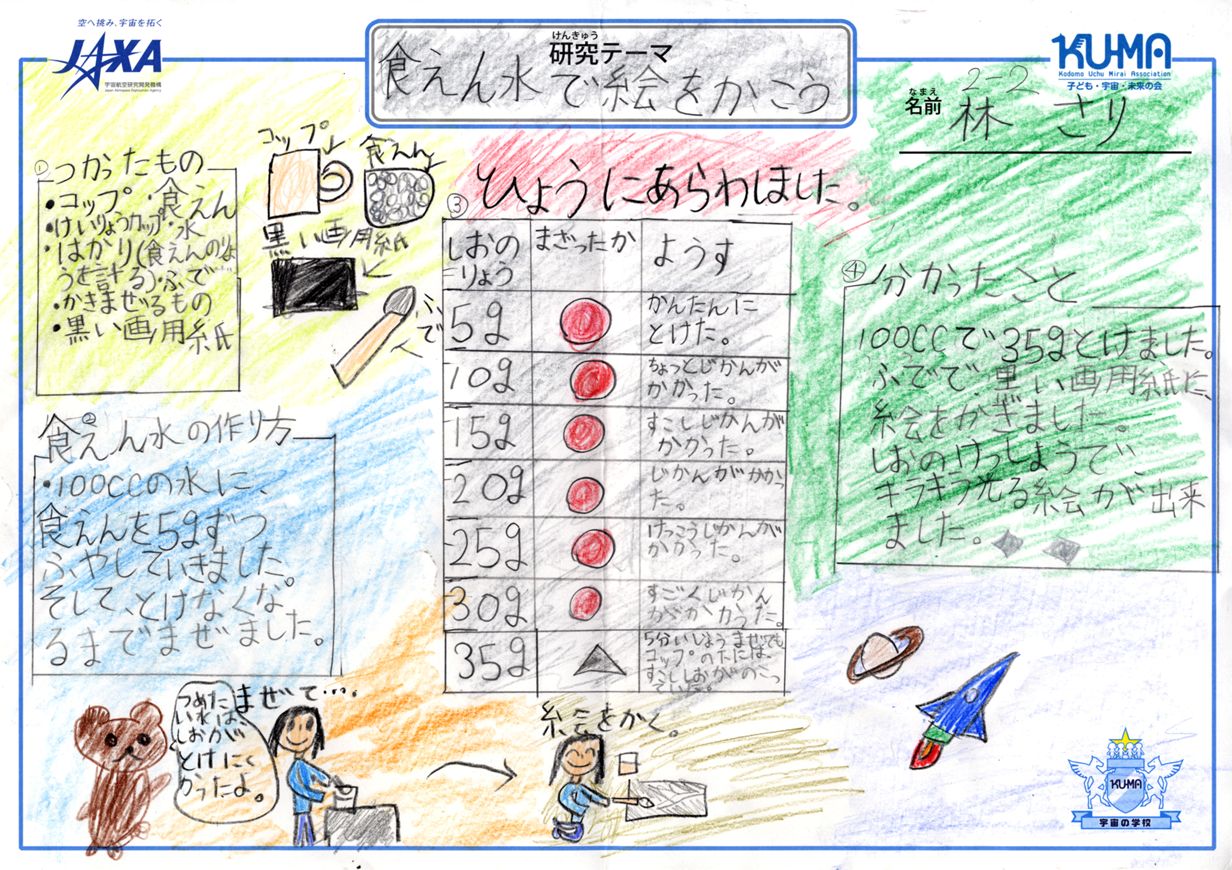 空へ挑み、宇宙を拓く
JAXA
宇宙航空研究開発機構
Japan Aerospace Exploration Agency
けんきゅう
研究テーマ
食えん水で絵をかこう
KU-MA
Kodomo Uchu Mirai Association
子ども・宇宙・未来の会
なまえ
名前
2-2
林 さり
①つかったもの
・コップ・食えん
・けいりょうカップ・水
・はかり(食えんのりょ
うを計る)・ふで
・かきまぜるもの
・黒い画用紙
コップ
食えん
黒い画用紙
ふで
②
食えん水の作り方
・100CCの水に、
食えんを5gずつ
ふやしていきました。
そして、とけなくな
るまでまぜました。
③ひょうにあらわしました。
しおの
りょう
まざったか
ようす
5g
かんたんに
とけた。
10g
ちょっとじかんが
かかった。
15g
すこしじかんが
かかった。
20g
じかんがかかっ
た。
25g
けっこうじかんが
かかった。
30g
すごくじかん
がかかった。
35g
5分いじょうまぜても
コップのたには、
すこししおがのこっ
ていた。
④分かったこと
100CCで35gとけました。
ふでで、黒い画用紙に、
絵をかきました。
しおのけっしょうで、
キラキラ光る絵が出来
ました。
つめた
い水は、
しおが
とけにく
かったよ。
まぜて・・・。
絵をかく。
KU-MA
宇宙の学校